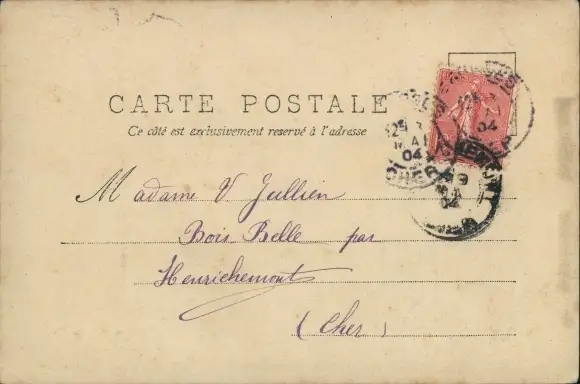 CARTE POSTALE
Ce côté est exclusivement reservé à l'adresse
Madame V Jullien
Bois Belle par
Henrichemont
(Cher)
04
CHER
04